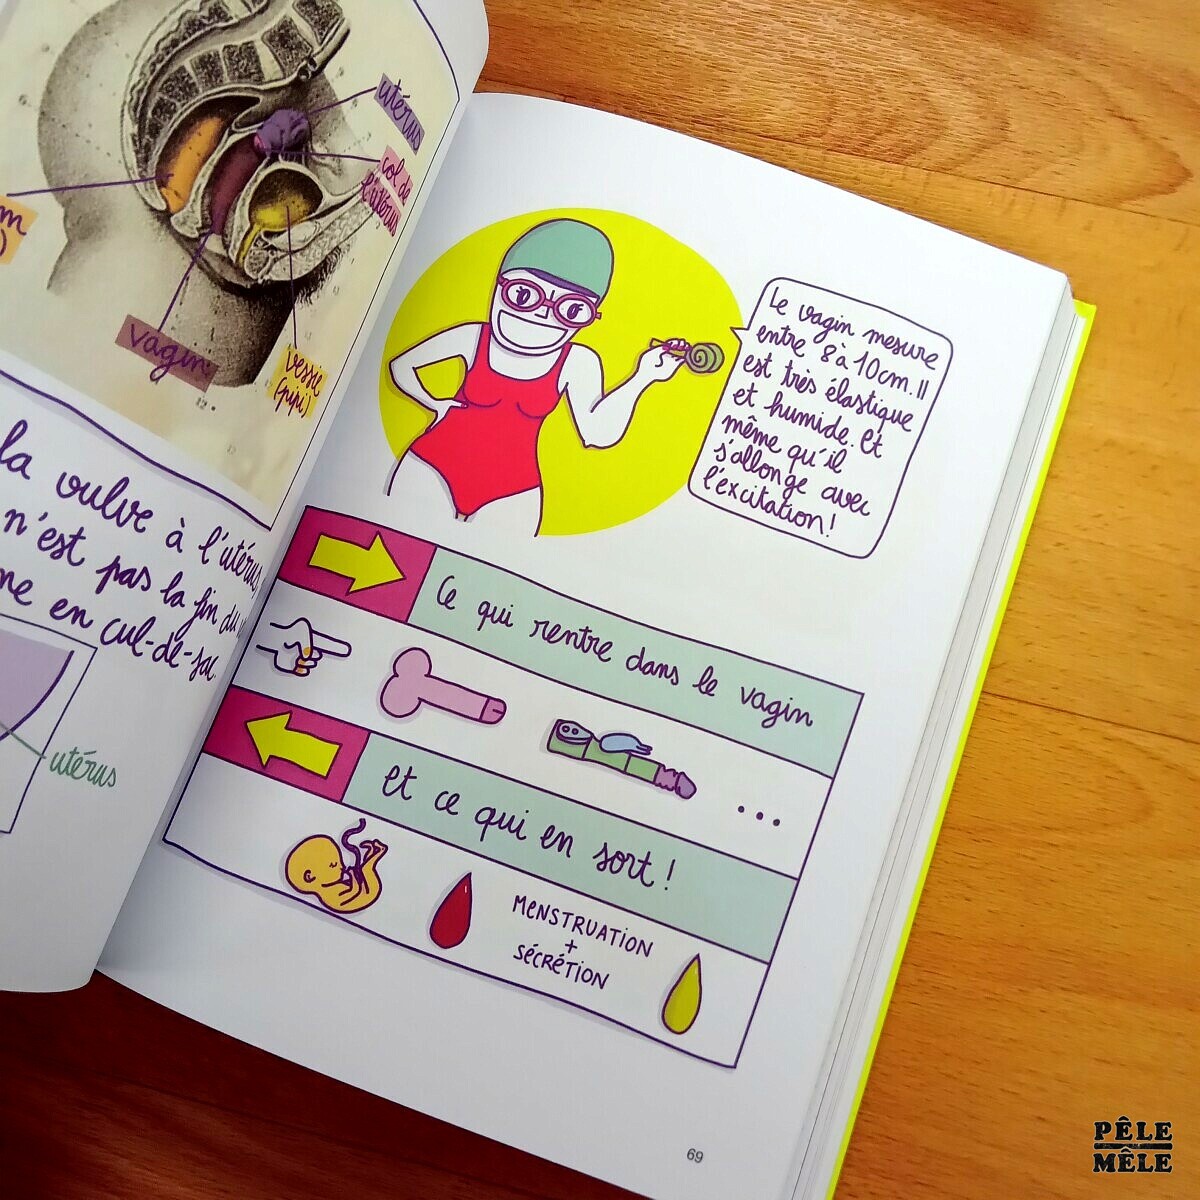 utérus
col de
l'utérus
vagin
vessie
(pipi)
12
la vulve à l'utérus,
n'est pas la fin du
en cul-de-sac.
utérus
Le vagin mesure
entre 8 à 10cm. Il
est très élastique
et humide. Et
même qu'il
s'allonge avec
l'excitation!
Ce qui rentre dans le vagin
...
Et ce qui en sort!
MENSTRUATION
+
SÉCRÉTION
69
PÊLE
MÊLE